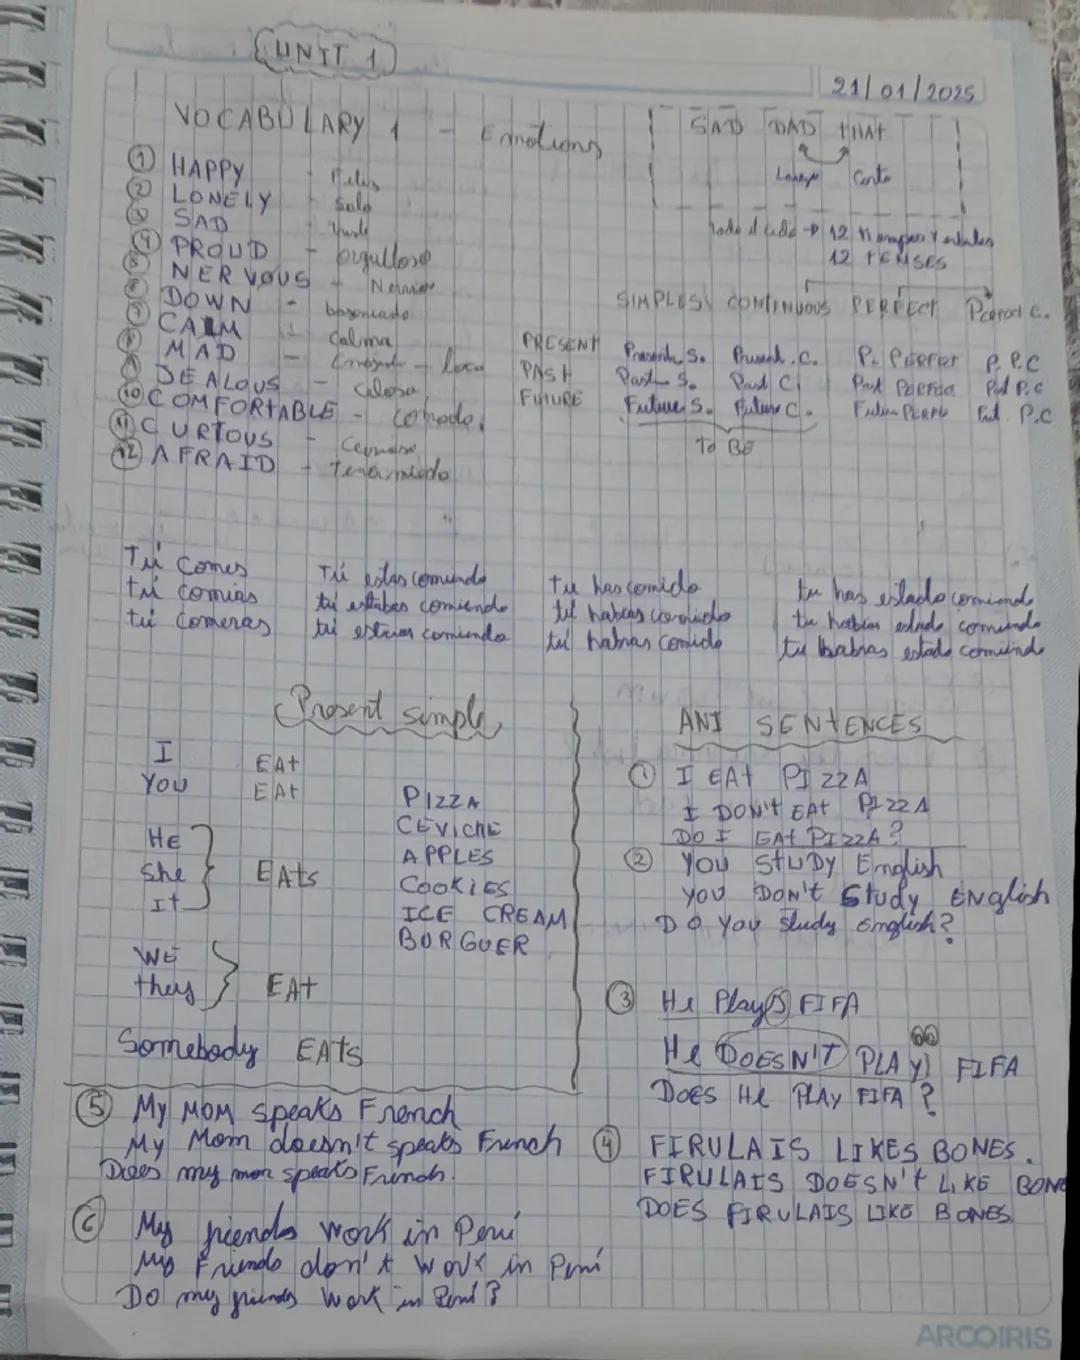 UNIT 1
21/01/2025
VOCABULARY 1 - Emotions
① HAPPY - Feliz
② LONELY - Solo
③ SAD - triste
④ PROUD - orgulloso
⑤ NERVOUS - Nervioso
⑥ DOWN -
⑦ CALM - Calma
⑧ MAD - Enojado - loco
⑨ JEALOUS - celoso
⑩ COMFORTABLE - comodo.
⑪ CURIOUS -
⑫ AFRAID - Tener miedo
SAD DAD tHAt
Largo Corto
12 tiempos Verbales
12 tENSES
SIMPLES CONTINUOUS PERFECT C.
PRESENT Present S. Present. C. P. P. P.C
PAST Past S. Past C. Past Past P.C
FUTURE Future S. Future C. Future Fut. P.C
To BE
Tú Comes Tú estás comiendo tu has comido tu has estado comiendo
tú comias tú estabas comiendo tú habias comido tu habias estado comiendo
tú comeras tú estaras comiendo tú habras comido tu habras estado comiendo
Present simple
I EAt
YOU EAt
HE
She EAts
It
WE
they EAt
Somebody EAts
PIZZA
CEVICHE
APPLES
COOKIES
ICE CREAM
BURGUER
ANI SENtENCES
① I EAt PIZZA
I DON't EAt PIZZA
DO I EAt PIZZA?
② YOU StUDY English
YOU DON't Study ENGlish
DO you study English?
③ He Plays FIFA
He DOESN'T PLAY FIFA
DOES He PLAY FIFA?
④ FIRULAIS LIKES BONES.
FIRULAIS DOESN't LIKE BONE
DOES FIRULAIS LIKE BONES
⑤ My MOM speaks French
My Mom doesn't speaks French
Does my mom speaks French.
⑥ My friends work in Perú
My Friends don't work in Perú
Do my friends work in Perú?
ARCOIRIS